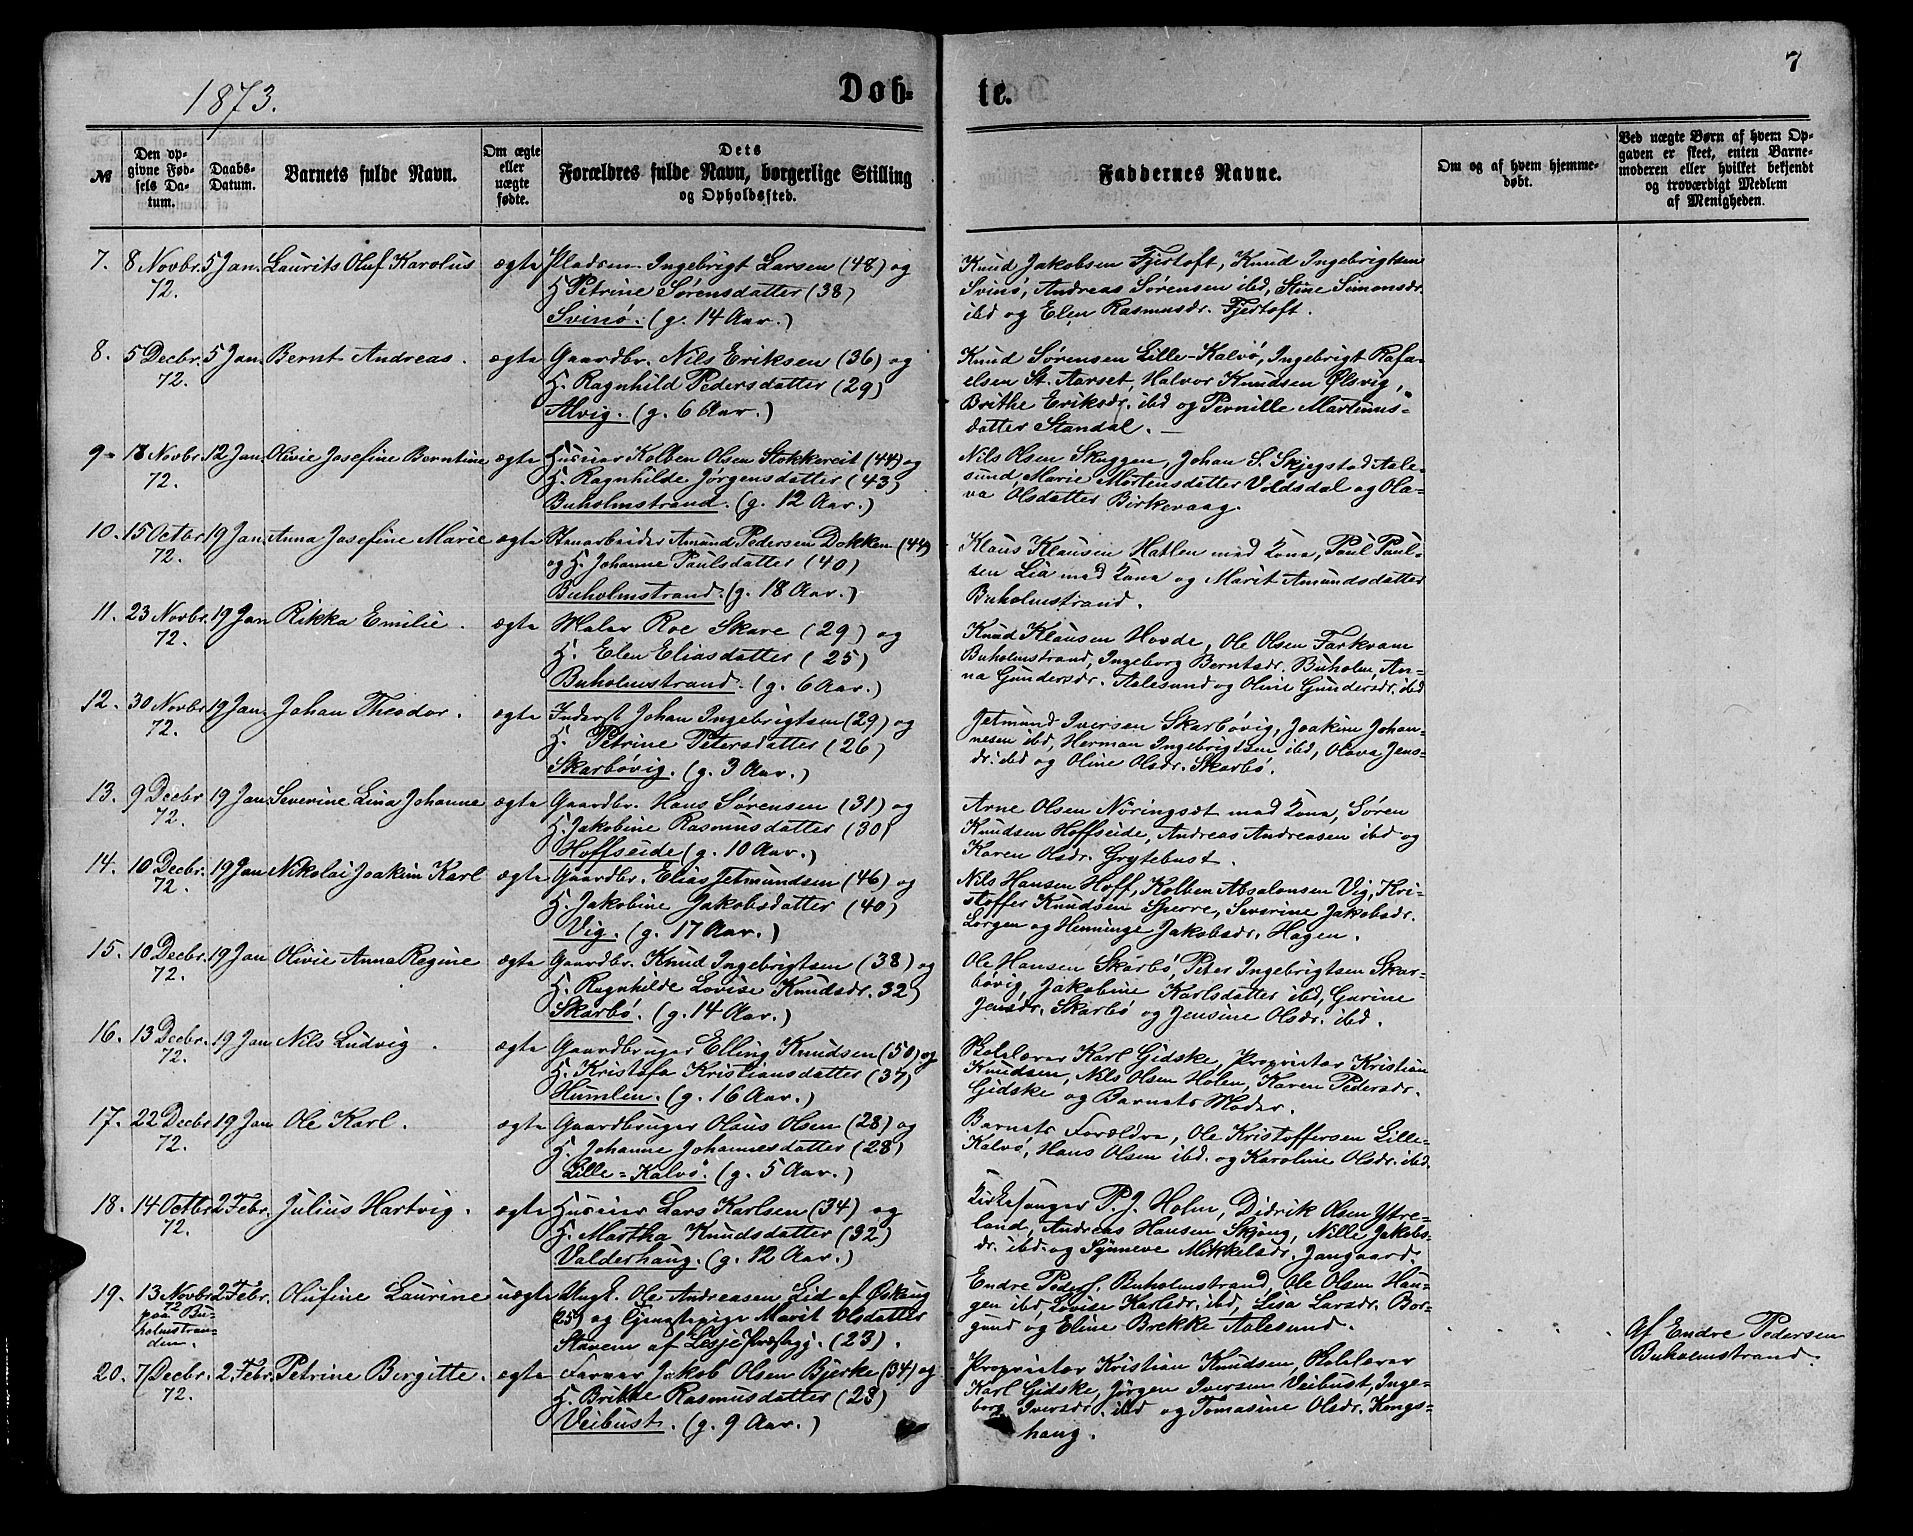 1873.
Døb-
te.
7
№
Den op-
givne Fød-
sels Da-
tum.
Daabs-
Datum.
Barnets fulde Navn.
Om ægte
eller
uægte
fødte.
Dets
Forældres fulde Navn, borgerlige Stilling
og Opholdssted.
Faddernes Navne.
Om og af hvem hjemme-
døbt.
Ved uægte Børn af hvem Op-
gaven er skeet, enten Barne-
moderen eller hvilket bekjendt
og troværdigt Medlem
af Menigheden.
7. 8 Novbr. 5 Jan. Laurits Oluf Karolus ægte Pladsm. Ingebrigt Larsen (48) og
72. H. Petrine Sørensdatter (38)
Svinø. (g. 14 Aar.)
Knud Jakobsen Fjertoft, Knud Ingebrigtsen
Svinø, Andreas Sørensen ibd, Stine Simonsdr.
ibd og Elen Rasmusdr. Fjertoft.
8. 5 Decbr. 5 Jan. Bernt Andreas. ægte Gaardbr. Nils Eriksen (36) og
72. H. Ragnhild Pedersdatter (29)
Alvig. (g. 6 Aar.)
Knud Sørensen Lille-Kalvø, Ingebrigt Rafa-
elsen St. Aarset, Halvor Knudsen Ølsvig,
Brithe Eriksdr. ibd og Pernille Martinus-
datter Standal.
9. 18 Novbr. 12 Jan. Olivie Josefine Berntine ægte Husmr Kolben Olsen Stokkereit (44) og
72. H. Ragnhilde Jørgensdatter (43)
Buholmstrand. (g. 12 Aar.)
Nils Olsen Skuggen, Johan S. Skjegstad Aale-
sund, Marie Mortensdatter Voldsdal og Ola-
va Olsdatter Birkevaag.
10. 15 Octbr 19 Jan. Anna Josefine Marie ægte Stenarbeider Amund Pedersen Dokken (44)
72. og H. Johanne Paulsdatter (40)
Buholmstrand. (g. 18 Aar.)
Klaus Klausen Hatlen med Kona, Paul Paul-
sen Lia med Kona og Marit Amundsdatter
Buholmstrand.
11. 23 Novbr. 19 Jan Rikka Emilie. ægte Maler Roe Skare (29) og
72. H. Elen Eliasdatter (25)
Buholmstrand. (g. 6 Aar.)
Knud Klausen Hovde, Ole Olsen Farkvam
Buholmstrand, Ingeborg Berntsdr. Buholm, An-
na Gundersdr. Aalesund og Oline Gundersdr. ibd
12. 30 Novbr 19 Jan. Johan Theodor. ægte Inderst Johan Ingebrigtsen (29) og
72. H. Petrine Petersdatter (26)
Skarbøvig. (g. 3 Aar.)
Jetmund Iversen Skarbøvig, Joakim Johan-
nesen ibd, Herman Ingebrigtsen ibd, Olava Jens-
dr. ibd og Oline Olsdr. Skarbø.
13. 9 Decbr 19 Jan Severine Lina Johanne ægte Gaardbr. Hans Sørensen (31) og
72. H. Jakobine Rasmusdatter (30)
Hoffseide (g. 10 Aar.)
Arne Olsen Nøringsæt med Kona, Søren
Knudsen Hoffseide, Andreas Andreasen ibd og
Karen Olsdr. Grytebust.
14. 10 Decbr. 19 Jan Nikolai Joakim Karl ægte Gaardbr. Elias Jetmundsen (46) og
72. H. Jakobine Jakobsdatter (40)
Vig. (g. 17 Aar.)
Nils Hansen Hoff, Kolben Absalonsen Vig, Kri-
stoffer Knudsen Sperre, Severine Jakobsdr.
Lorgen og Henninge Jakobsdr. Hagen.
15. 10 Decbr. 19 Jan Olivie Anna Regine ægte Gaardbr. Knud Ingebrigtsen (38) og
72. H. Ragnhilde Lovise Knudsdr. 32)
Skarbø. (g. 14 Aar.)
Ole Hansen Skarbø, Peter Ingebrigtsen Skar-
bøvig, Jakobine Karlsdatter ibd, Gurine
Jensdr. Skarbø og Jensine Olsdr. ibd.
16. 13 Decbr. 19 Jan Nils Ludvig. ægte Gaardbruger Elling Knudsen (50) og
72. H. Kristofa Kristiansdatter (37)
Humlen. (g. 16 Aar.)
Skolelærer Karl Gidske, Proprietær Kristian
Knudsen, Nils Olsen Holen, Karen Pedersdr.
Gidske og Barnets Moder.
17. 22 Decbr 19 Jan Ole Karl. ægte Gaardbruger Olaus Olsen (28) og
72. H. Johanne Johannesdatter (28)
Lille-Kalvø. (g. 5 Aar.)
Barnets Forældre, Ole Kristoffersen Lille-
Kalvø, Hans Olsen ibd. og Karoline Olsdr. ibd.
18. 14 Octbr 2 Febr. Julius Hartvig. ægte Husmr Lars Karlsen (34) og
72. H. Martha Knudsdatter (32)
Valderhaug. (g. 12 Aar.)
Kirkesanger P. J. Holm, Didrik Olsen Ytre-
land, Andreas Hansen Skjong, Nille Jakobs-
dr. ibd. og Synneve Mikkelsdr. Jangaard.
19. 13 Novbr 2 Febr. Olufine Laurine uægte Ungk. Ole Andreasen Lid af Ørskoug
72 paa Bu-
holmstran-
den. 25) og Tjenestepige Marit Olsdatter
Stavem af Lesje Præstegj. (23).
Endre Peders. Buholmstrand, Ole Olsen Hau-
gen ibd, Lovise Karlsdr. ibd, Lisa Larsdr. Bor-
gund og Eline Brekke Aalesund.
Af Endre Pedersen
Buholmstrand.
20. 7 Decbr. 2 Febr. Petrine Birgitte. ægte Farver Jakob Olsen Bjerke (34) og
72. H. Brithe Rasmusdatter (28)
Veibust. (g. 9 Aar.)
Proprietær Kristian Knudsen, Skolelærer
Karl Gidske, Jørgen Iversen Veibust, Inge-
borg Iversdr. ibd og Tomasine Olsdr. Kongs-
haug.